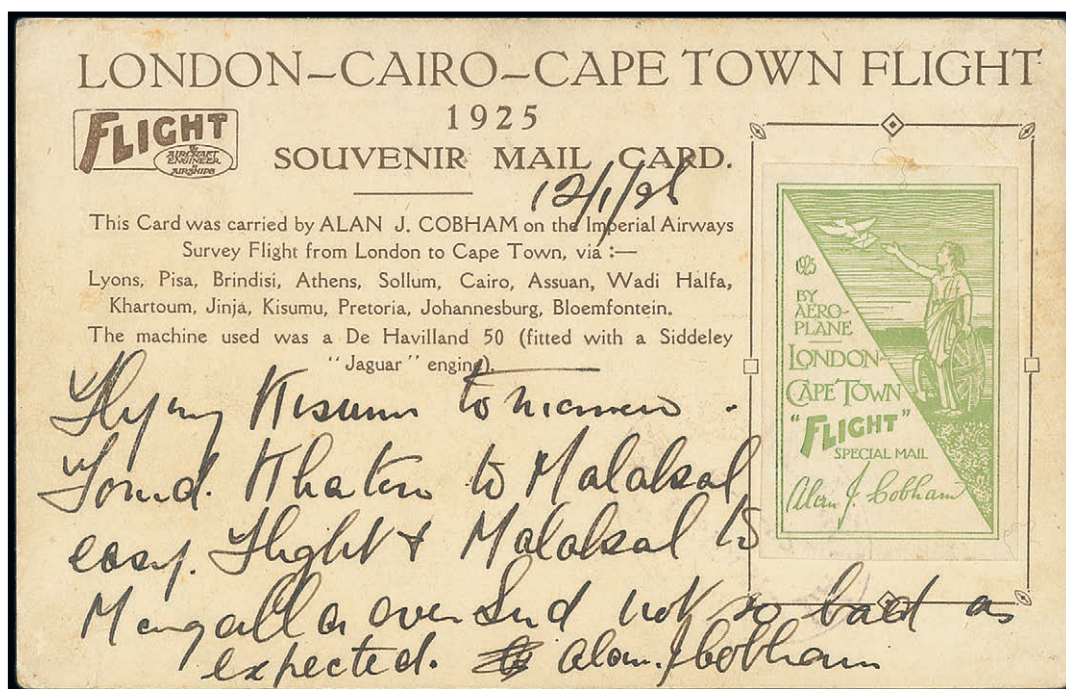 LONDON–CAIRO–CAPE TOWN FLIGHT
1925
FLIGHT
The
AIRCRAFT
ENGINEER
&
AIRSHIPS
SOUVENIR MAIL CARD.
12/1/26
This Card was carried by ALAN J. COBHAM on the Imperial Airways
Survey Flight from London to Cape Town, via :—
Lyons, Pisa, Brindisi, Athens, Sollum, Cairo, Assuan, Wadi Halfa,
Khartoum, Jinja, Kisumu, Pretoria, Johannesburg, Bloemfontein.
The machine used was a De Havilland 50 (fitted with a Siddeley
"Jaguar" engine).
Flying Kisumu tomorrow.
Found. Khatm to Malakal
easy. Flight & Malakal to
Mongalla over Sud not so bad as
expected. Alan J Cobham
1925
BY
AERO-
PLANE
LONDON-
CAPE TOWN
"FLIGHT"
SPECIAL MAIL
Alan J. Cobham